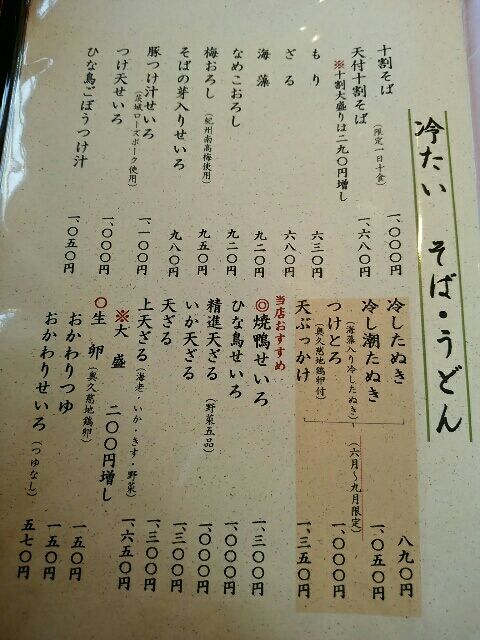 冷たい そば・うどん
十割そば（限定一日十食） 一、〇〇〇円
天付十割そば 一、六八〇円
※十割大盛りは二九〇円増し
もり 六三〇円
ざる 六八〇円
海藻 九二〇円
なめこおろし 九二〇円
梅おろし（紀州南高梅使用） 九五〇円
そばの芽入りせいろ 九八〇円
豚つけ汁せいろ（茨城ローズポーク使用） 一、一〇〇円
つけ天せいろ 一、〇〇〇円
ひな鳥ごぼうつけ汁 一、〇五〇円
冷したぬき 八九〇円
冷し潮たぬき（海藻入り冷したぬき） 一、〇五〇円
つけとろ（奥久慈地鶏卵付） 一、〇〇〇円
（六月～九月限定）
天ぶっかけ 一、三五〇円
当店おすすめ
◎焼鴨せいろ 一、三〇〇円
ひな鳥せいろ 一、〇〇〇円
精進天ざる（野菜五品） 一、〇〇〇円
いか天ざる 一、三〇〇円
天ざる 一、三〇〇円
上天ざる（海老・いか・きす・野菜） 一、六五〇円
※大盛 二〇〇円増し
〇生卵（奥久慈地鶏卵） 一五〇円
おかわりつゆ 一五〇円
おかわりせいろ（つゆなし） 五七〇円